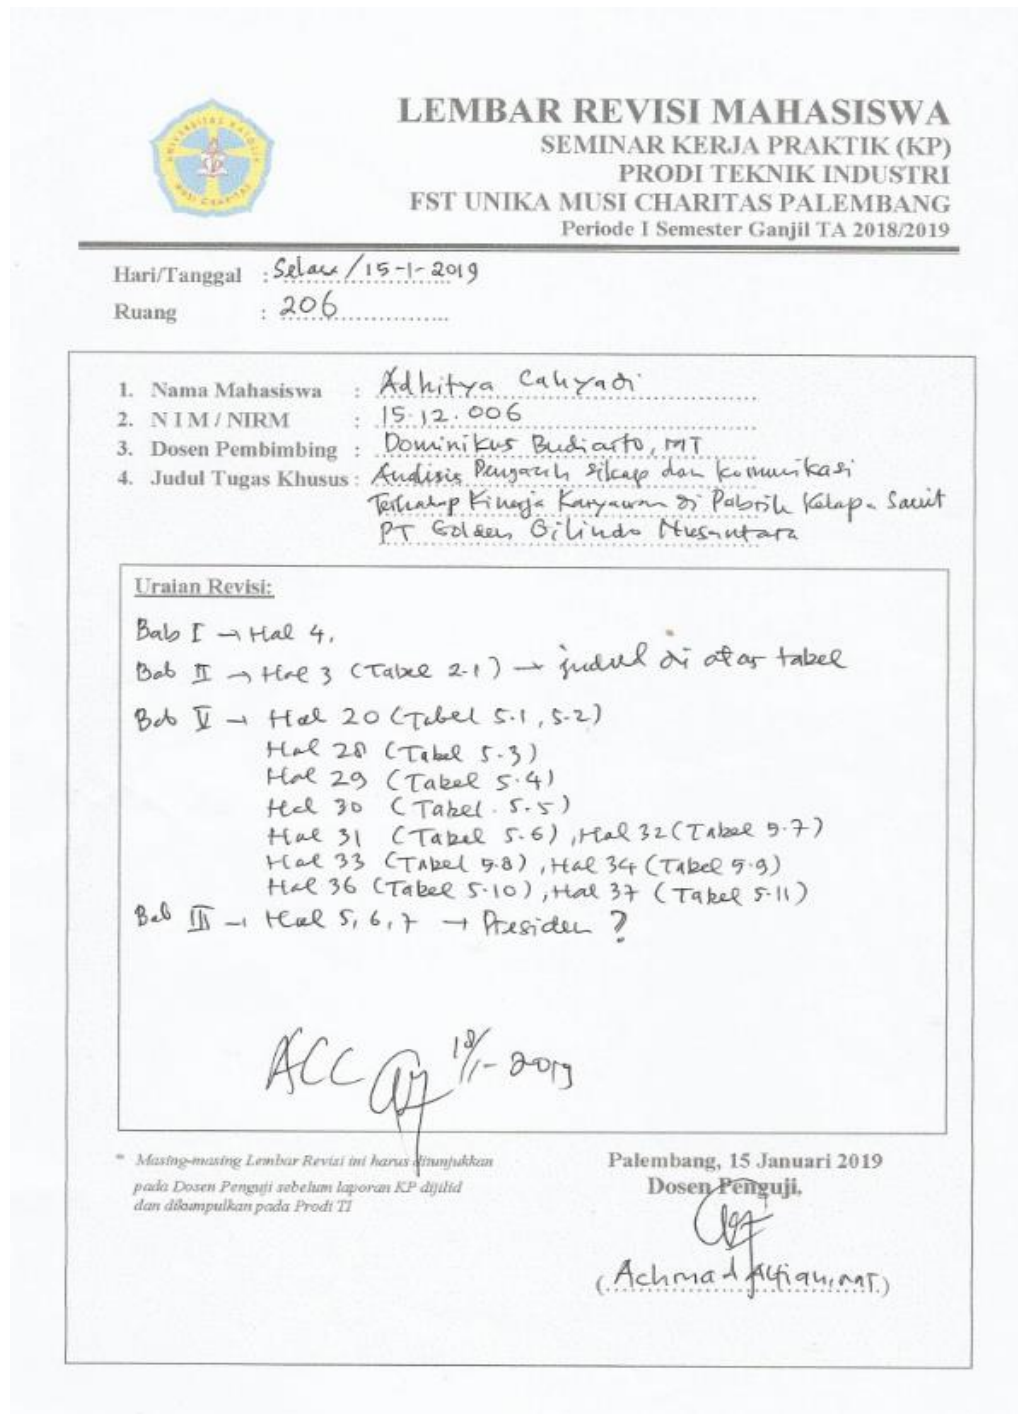 UNIVERSITAS KATOLIK
MUSI CHARITAS
LEMBAR REVISI MAHASISWA
SEMINAR KERJA PRAKTIK (KP)
PRODI TEKNIK INDUSTRI
FST UNIKA MUSI CHARITAS PALEMBANG
Periode I Semester Ganjil TA 2018/2019
Hari/Tanggal : Selasa / 15-1-2019
Ruang : 206
1. Nama Mahasiswa : Adhitya Cahyadi
2. N I M / NIRM : 15.12.006
3. Dosen Pembimbing : Dominikus Budiarto, MT
4. Judul Tugas Khusus : Analisis Pengaruh Sikap dan Komunikasi
Terhadap Kinerja Karyawan di Pabrik Kelapa Sawit
PT Golden Oilindo Nusantara
Uraian Revisi:
Bab I → Hal 4.
Bab II → Hal 3 (Tabel 2.1) → judul di atas tabel
Bab V → Hal 20 (Tabel 5.1, 5.2)
Hal 28 (Tabel 5.3)
Hal 29 (Tabel 5.4)
Hal 30 (Tabel 5.5)
Hal 31 (Tabel 5.6), Hal 32 (Tabel 5.7)
Hal 33 (Tabel 5.8), Hal 34 (Tabel 5.9)
Hal 36 (Tabel 5.10), Hal 37 (Tabel 5.11)
Bab III → Hal 5, 6, 7 → Presiden ?
ACC 18/1-2019
* Masing-masing Lembar Revisi ini harus ditunjukkan
pada Dosen Penguji sebelum laporan KP dijilid
dan dikumpulkan pada Prodi TI
Palembang, 15 Januari 2019
Dosen Penguji,
(Achmad Alfian, MT.)